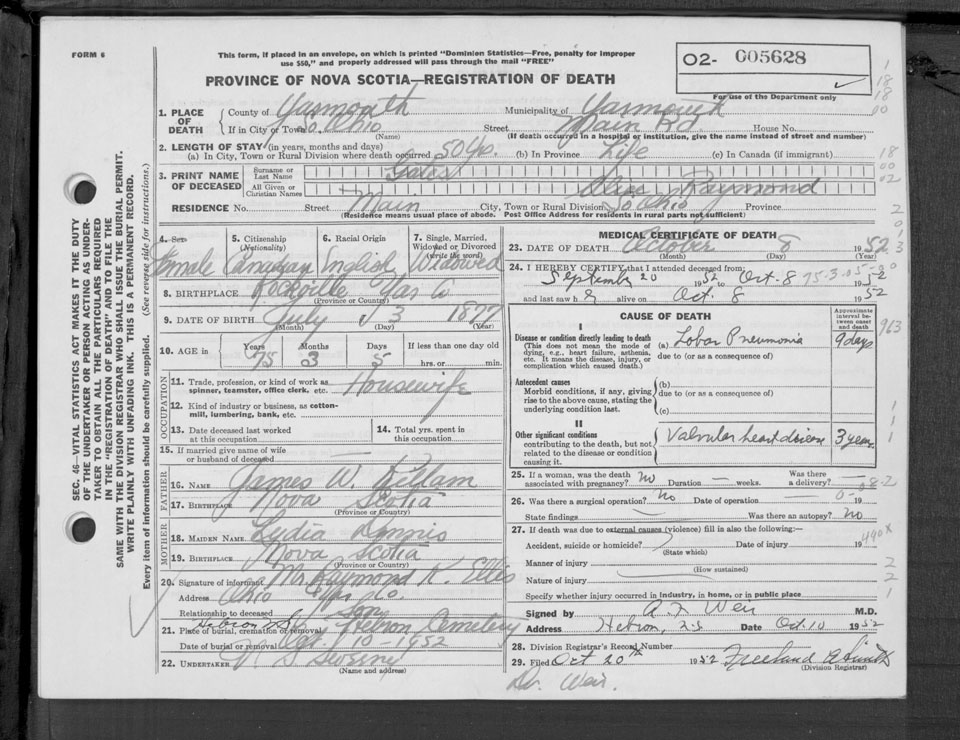 FORM 6
This form, if placed in an envelope, on which is printed "Dominion Statistics—Free, penalty for improper
use $50," and properly addressed will pass through the mail "FREE"
PROVINCE OF NOVA SCOTIA—REGISTRATION OF DEATH
02- 005628
For use of the Department only
1. PLACE OF DEATH
County of Yarmouth Municipality of Yarmouth
If in City or Town So. Ohio Street Main Rd House No.
(Name) (If death occurred in a hospital or institution, give the name instead of street and number)
2. LENGTH OF STAY (in years, months and days)
(a) In City, Town or Rural Division where death occurred 50 Yrs. (b) In Province Life (c) In Canada (if immigrant)
3. PRINT NAME OF DECEASED
Surname or Last Name
All Given or Christian Names Raymond
RESIDENCE No. Street Main City, Town or Rural Division So. Ohio Province
(Residence means usual place of abode. Post Office Address for residents in rural parts not sufficient)
4. Sex 5. Citizenship (Nationality) 6. Racial Origin 7. Single, Married, Widowed or Divorced (write the word)
Female Canadian English Widowed
8. BIRTHPLACE Rockville Yar Co
(Province or Country)
9. DATE OF BIRTH July 3 1877
(Month) (Day) (Year)
10. AGE in Years Months Days If less than one day old
75 3 5 hrs. or min.
OCCUPATION
11. Trade, profession, or kind of work as spinner, teamster, office clerk. etc. Housewife
12. Kind of industry or business, as cotton-mill, lumbering, bank, etc.
13. Date deceased last worked at this occupation 14. Total yrs. spent in this occupation
15. If married give name of wife or husband of deceased
FATHER
16. NAME James W. Killam
17. BIRTHPLACE Nova Scotia
(Province or Country)
MOTHER
18. MAIDEN NAME Lydia Dennis
19. BIRTHPLACE Nova Scotia
(Province or Country)
20. Signature of informant Mr Raymond K. Ellis
Address Ohio Yar Co.
Relationship to deceased Son
21. Place of burial, cremation or removal Hebron Cemetery
Date of burial or removal Oct. 10-1952
22. UNDERTAKER
(Name and address)
MEDICAL CERTIFICATE OF DEATH
23. DATE OF DEATH October 8 1952
(Month) (Day) (Year)
24. I HEREBY CERTIFY that I attended deceased from:
September 20 1952 to Oct. 8 1952
and last saw h alive on Oct 8 1952
CAUSE OF DEATH
Approximate interval between onset and death
I
Disease or condition directly leading to death (a) Lobar Pneumonia 9 days
(This does not mean the mode of dying, e.g., heart failure, asthenia, etc. It means the disease, injury, or complication which caused death.) due to (or as a consequence of)
Antecedent causes (b)
Morbid conditions, if any, giving rise to the above cause, stating the underlying condition last. due to (or as a consequence of)
(c)
II
Other significant conditions Valvular heart disease 3 years
contributing to the death, but not related to the disease or condition causing it.
25. If a woman, was the death associated with pregnancy? No Duration — weeks. Was there a delivery? —
26. Was there a surgical operation? No Date of operation
State findings Was there an autopsy? No
27. If death was due to external causes (violence) fill in also the following:—
Accident, suicide or homicide? Date of injury 19
(State which)
Manner of injury
(How sustained)
Nature of injury
Specify whether injury occurred in industry, in home, or in public place
Signed by A F Weir M.D.
Address Hebron, N.S Date Oct. 10 1952
28. Division Registrar's Record Number
29. Filed Oct 20th 1952
(Division Registrar)
Dr. Weir.
SEC. 46—VITAL STATISTICS ACT MAKES IT THE DUTY
OF THE UNDERTAKER OR PERSON ACTING AS UNDER-
TAKER TO OBTAIN ALL THE PARTICULARS REQUIRED
IN THE "REGISTRATION OF DEATH" AND TO FILE THE
SAME WITH THE DIVISION REGISTRAR WHO SHALL ISSUE THE BURIAL PERMIT.
WRITE PLAINLY WITH UNFADING INK. THIS IS A PERMANENT RECORD.
Every item of information should be carefully supplied. (See reverse side for instructions.)